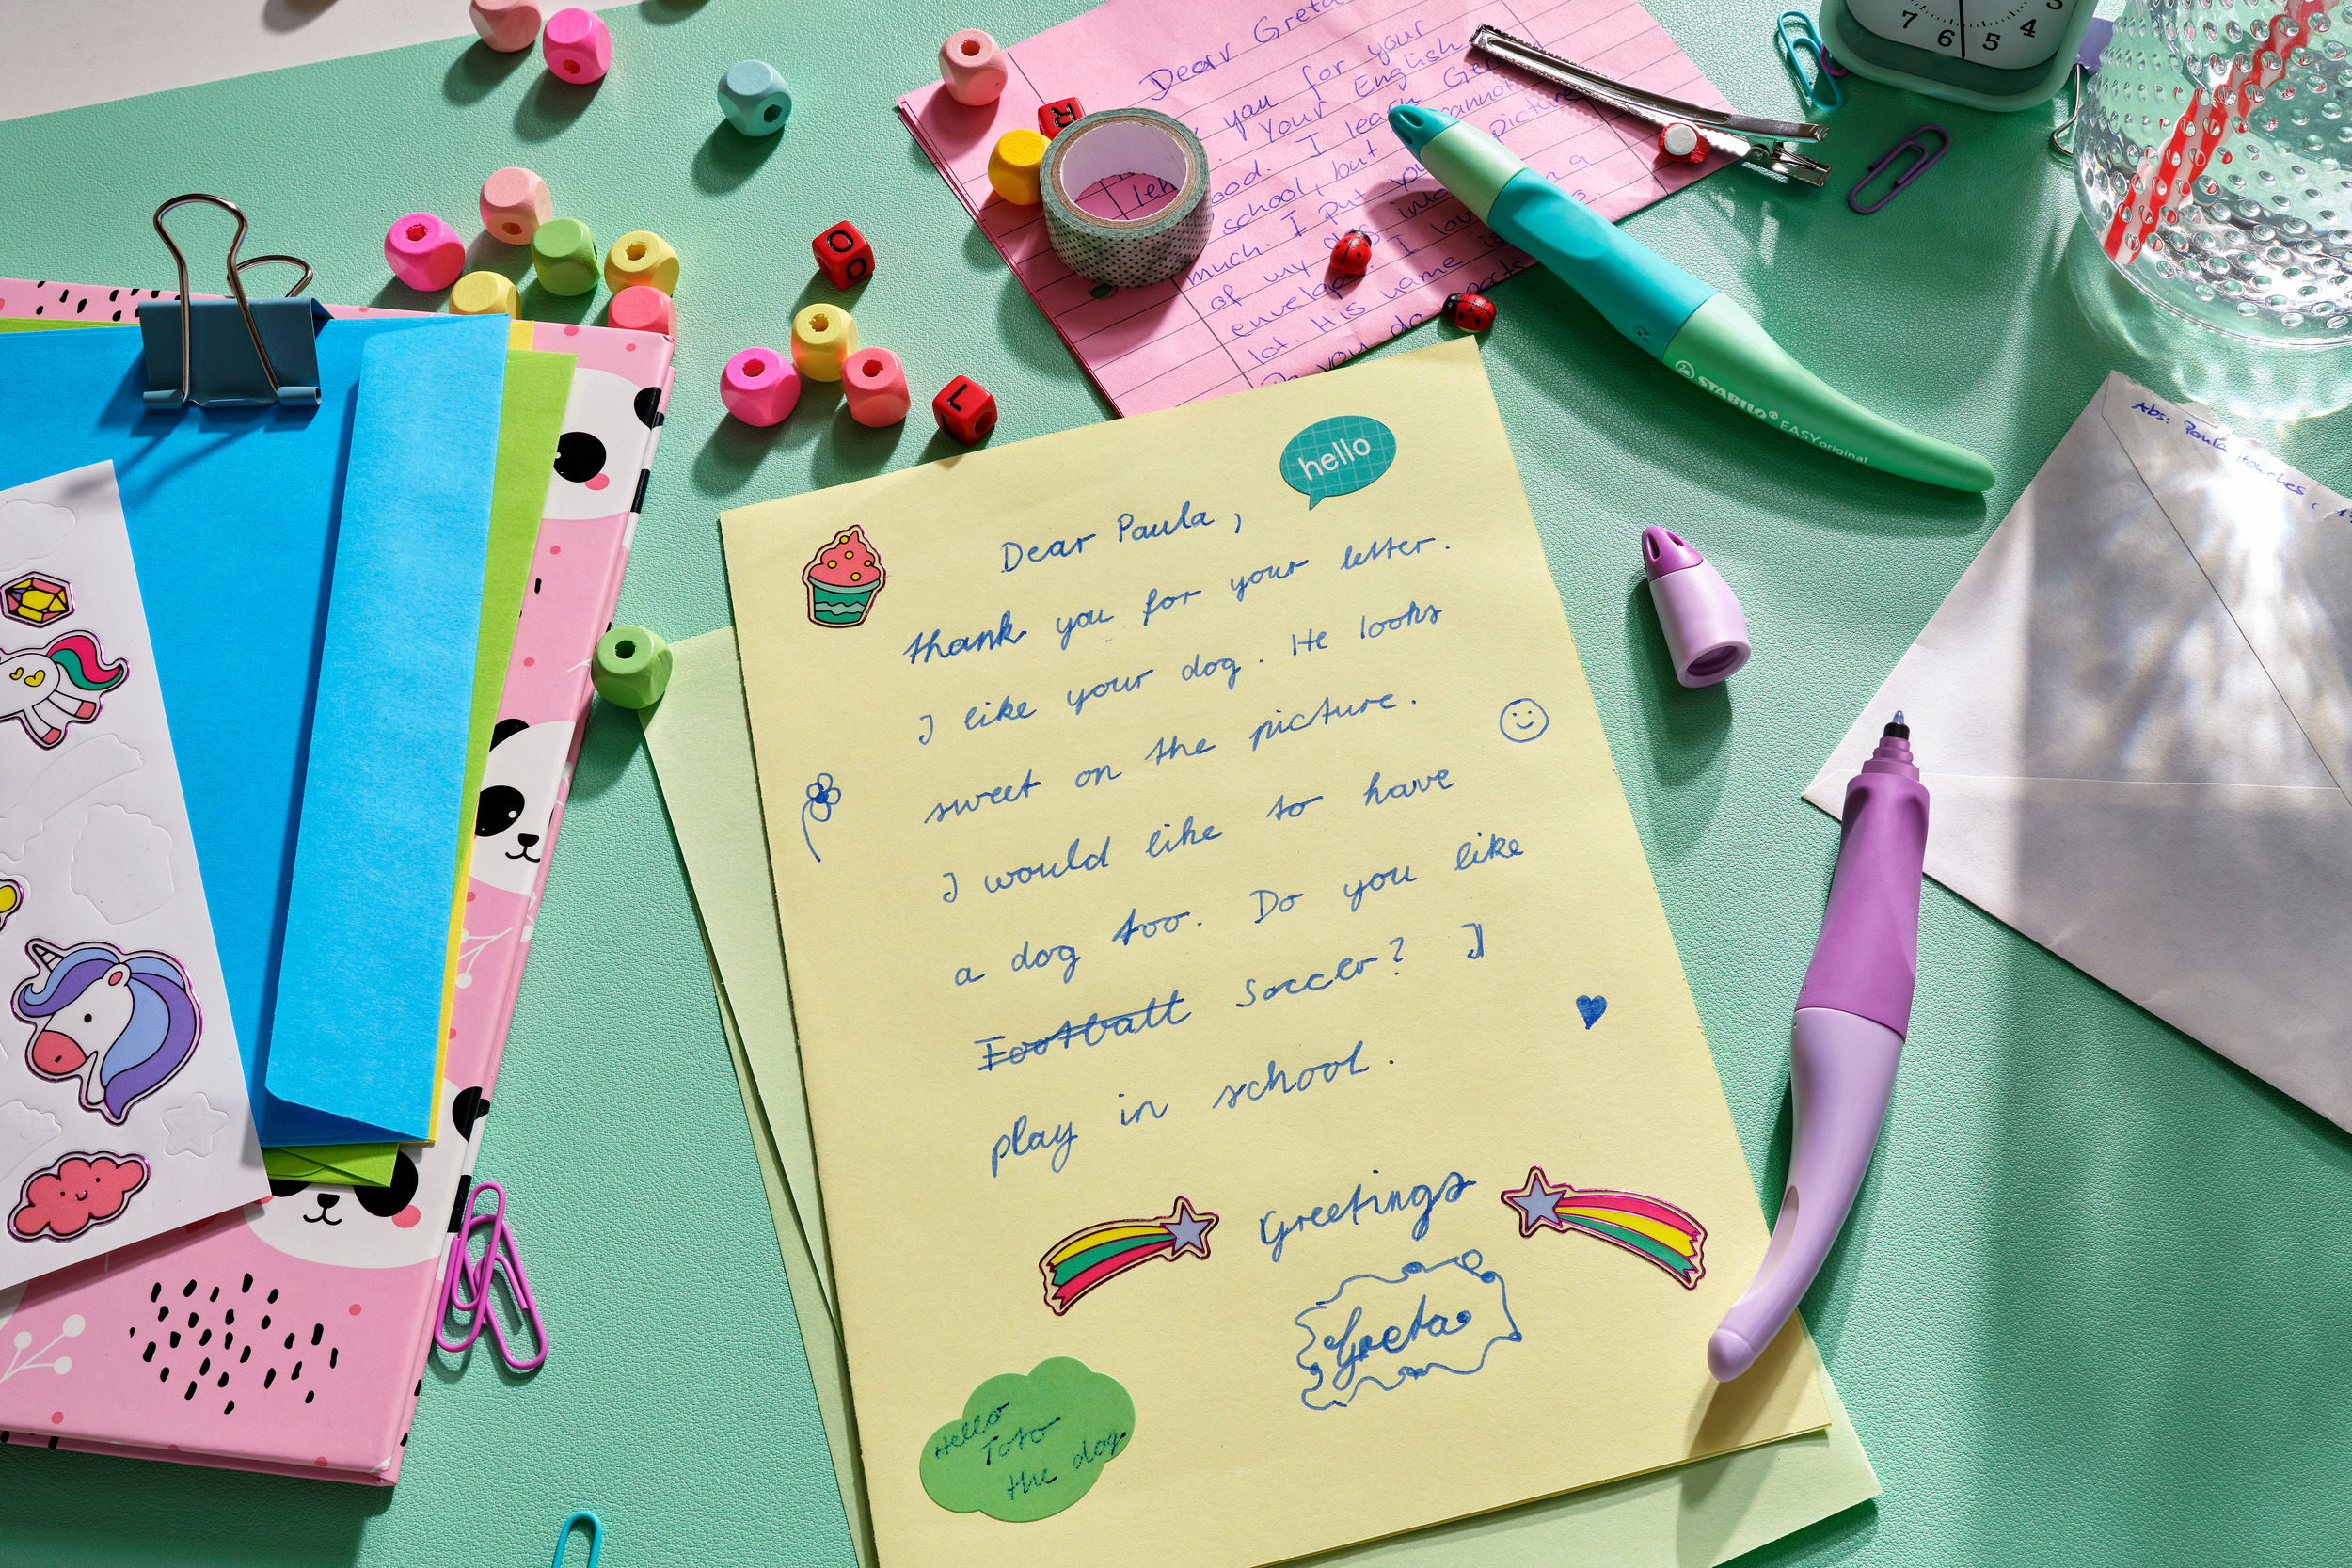 Dear Greta
you for your
Your English
ood. I learn Ger
school, but cannot
much. I put your picture
of my dog into
envelope. I lov
lot. His name is
you do
7 6 5 4
R
O
O
L
R
STABILO® EASYoriginal
Abs: Paula
hello
Dear Paula,
thank you for your letter.
I like your dog. He looks
sweet on the picture.
I would like to have
a dog too. Do you like
Football Soccer? I
play in school.
Greetings
Greta
Hello
Toto
the dog